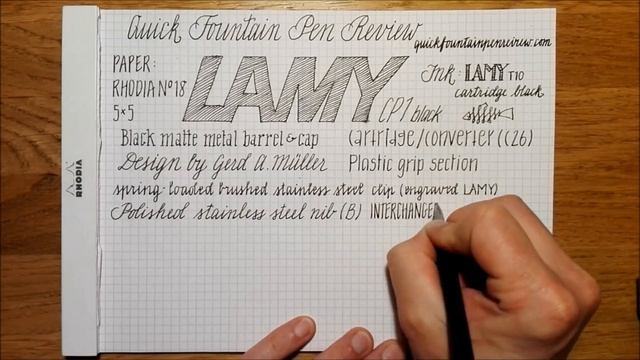 Quick Fountain Pen Review
quickfountainpenreview.com
PAPER:
RHODIA Nº18
5×5
LAMY
CP1 black
Ink: LAMY T10
cartridge black
Black matte metal barrel & cap
Cartridge/converter (Z26)
Design by Gerd A. Müller
Plastic grip section
spring-loaded brushed stainless steel clip (engraved LAMY)
Polished stainless steel nib (B) INTERCHANGE
RHODIA